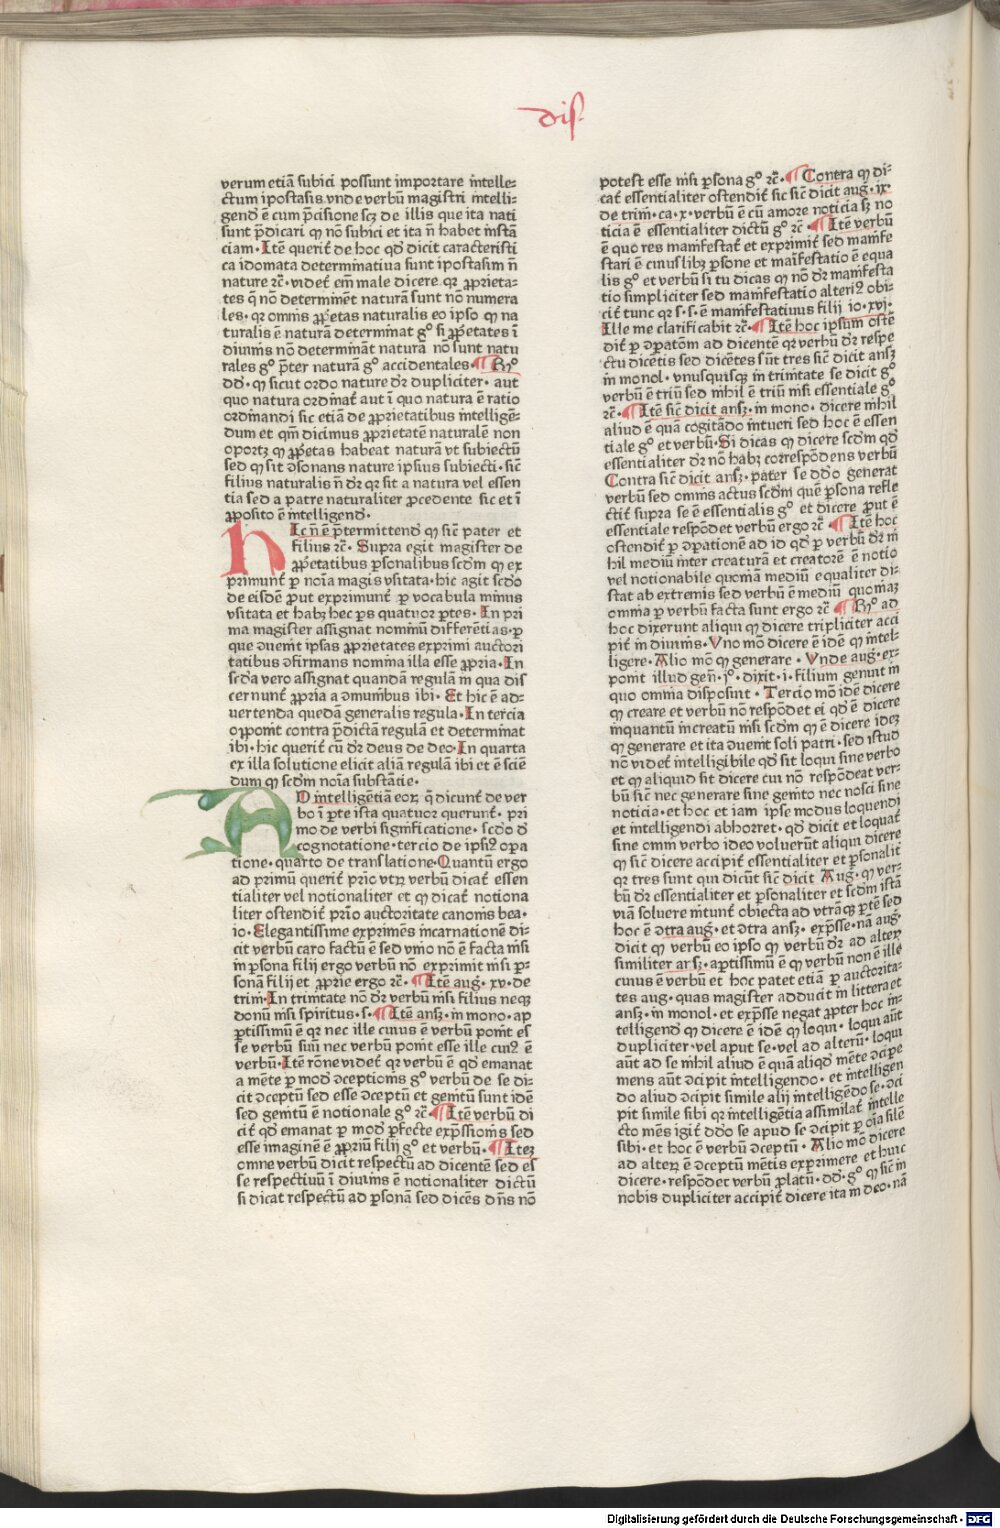 dis.
verum etiā subici possunt importare intelle-
ctum ipostasis. vnde verbū magistri intelli-
gend̄ ē cum p̄cisione scꝫ de illis que ita nati
sunt p̄dicari ꝙ nō subici et ita n̄ habet instā
ciam. Itē querit̄ de hoc qd̄ dicit caracteristi
ca idomata determinatiua sunt ipostasim n̄
nature ꝛc̄. videt̄ em̄ male dicere. qꝛ ꝓprieta-
tes q̄ nō determinēt naturā sunt nō numera
les. qꝛ omnis ꝓp̄etas naturalis eo ipso ꝙ na
turalis ē naturā determinat gº si ꝓp̄etates ī
diuinis nō determināt naturā nō sunt natu
rales gº p̄ter naturā gº accidentales. ¶ Rº
dd̄. ꝙ sicut ordo nature dr̄ dupliciter. aut
quo natura ordinat̄ aut ī quo natura ē ratio
ordinandi sic etiā de ꝓprietatibus intelligē-
dum et qm̄ dicimus ꝓprietatē naturalē non
oportꝫ ꝙ ꝓp̄etas habeat naturā vt subiectū
sed ꝙ sit ꝯsonans nature ipsius subiecti. sic̄
filius naturalis n̄ dr̄ qꝛ sit a natura vel essen
tia sed a patre naturaliter ꝓcedente sic et ī
ꝓposito ē intelligend̄.
HIc n̄ ē p̄termittend̄ ꝙ sic̄ pater et
filius ꝛc̄. Supra egit magister de
ꝓp̄etatibus ꝑsonalibus scd̄m ꝙ ex
primunt̄ ꝑ noīa magis vsitata. hic agit scd̄o
de eisdē ꝓut exprimunt̄ ꝑ vocabula minus
vsitata et habꝫ hec ps quatuor ꝑtes. In pri
ma magister assignat nominū differētias. ꝑ
que ꝯuenit ipsas ꝓprietates exprimi auctori
tatibus ꝯfirmans nomina illa esse ꝓpria. In
scd̄a vero assignat quandā regulā in qua dis
cernunt̄ ꝓpria a ꝯmunibus ibi. Et hic ē ad-
uertenda quedā generalis regula. In tercia
oꝑponit contra p̄dictā regulā et determinat
ibi. hic querit̄ cū dr̄ deus de deo. In quarta
ex illa solutione elicit aliā regulā ibi et ē sciē
dum ꝙ scd̄m noīa substātie.
AD intelligētiā eoꝝ q̄ dicunt̄ de ver
bo ī ꝑte ista quatuor querunt̄. pri
mo de verbi significatione. scd̄o d̄
cognotatione. tercio de ipsiꝰ oꝑa
tione. quarto de translatione. Quantū ergo
ad primū querit̄ prīo vtꝝ verbū dicat̄ essen
tialiter vel notionaliter et ꝙ dicat̄ notiona
liter ostendit̄ prīo auctoritate canonis bea.
io. Elegantissime exprimēs incarnationē di-
cit verbū caro factū ē sed vnio nō ē facta nisi
in ꝑsona filij ergo verbū nō exprimit nisi ꝑ-
sonā filij et ꝓprie ergo ꝛc̄. ¶ Itē auḡ. xv. de
trini. In trinitate nō dr̄ verbū nisi filius neqꝫ
donū nisi spiritus. s. ¶ Itē ansꝫ. in mono. ap
ꝑtissimū ē qꝛ nec ille cuius ē verbū pōnit es
se verbū suū nec verbū ponit̄ esse ille cuiꝰ ē
verbū. Itē rōne videt̄ qꝛ verbū ē qd̄ emanat
a mēte ꝑ mod̄ ꝯceptionis gº verbū de se di-
cit ꝯceptū sed esse ꝯceptū et genitū sunt idē
sed genitū ē notionale gº ꝛc̄ ¶ Itē verbū di
cit̄ qd̄ emanat ꝑ mod̄ ꝑfecte exp̄ssionis sed
esse imaginē ē ꝓpriū filij gº et verbū. ¶ Iteꝫ
omne verbū dicit respectū ad dicentē sed es
se respectiuū ī diuinis ē notionaliter dictū
si dicat respectū ad ꝑsonā sed dicēs dn̄s nō
potest esse nisi ꝑsona gº ꝛc̄. ¶ Contra ꝙ di-
cat̄ essentialiter ostendit̄ sic sic̄ dicit aug. ix.
de trini. ca. x. verbū ē cū amore noticia sꝫ no
ticia ē essentialiter dictū gº ꝛc̄ ¶ Itē verbū
ē quo res manifestat̄ et exprimit̄ sed manife
stari ē cuiuslibꝫ ꝑsone et maīfestatio ē equa
lis gº et verbū si tu dicas ꝙ nō dr̄ manifesta
tio simpliciter sed manifestatio alteriꝰ obi-
cit̄ tunc qꝛ s. s. ē manifestatiuus filij io. xvj.
Ille me clarificabit ꝛc̄. ¶ Itē hoc ipsum ostē
dit̄ ꝑ ꝯꝑatōm ad dicentē qꝛ verbū dr̄ respe
ctu dicētis sed dicētes sūt tres sic̄ dicit ansꝫ
in monol. vnusquisqꝫ in trinitate se dicit gº
verbū ē triū sed nihil ē triū nisi essentiale gº
ꝛc̄. ¶ Itē sic̄ dicit ansꝫ. in mono. dicere nihil
aliud ē quā cogitādo intueri sed hoc ē essen
tiale gº et verbū. Si dicas ꝙ dicere scd̄m qd̄
essentialiter dr̄ nō habꝫ correspōdens verbū
Contra sic̄ dicit ansꝫ. pater se dd̄o generat
verbū sed omnis actus scd̄m quē ꝑsona refle
ctit̄ supra se ē essentialis gº et dicere ꝓut ē
essentiale respōdet verbū ergo ꝛc̄ ¶ Itē hoc
ostendit̄ ꝑ ꝯꝑationē ad id qd̄ ꝑ verbū dr̄ ni
hil mediū inter creaturā et creatorē ē notio
vel notionabile quoniā mediū equaliter di-
stat ab extremis sed verbū ē mediū quoniaꝫ
omnia ꝑ verbū facta sunt ergo ꝛc̄ ¶ Rº ad
hoc dixerunt aliqui ꝙ dicere tripliciter acci
pit̄ in diuinis. Vno mō dicere ē idē ꝙ intel-
ligere. Alio mō ꝙ generare. Vnde aug. ex-
ponit illud gen̄. jº. dixit. i. filium genuit in
quo omnia disposuit. Tercio mō idē dicere
ꝙ creare et verbū nō respōdet ei qd̄ ē dicere
inquantū increatū nisi scd̄m ꝙ ē dicere ideꝫ
ꝙ generare et ita ꝯuenit soli patri. sed istud
nō videt̄ intelligibile qd̄ sit loqui sine verbo
et ꝙ aliquid sit dicere cui nō respōdeat ver-
bū sic̄ nec generare sine genito nec nosci sine
noticia. et hoc et iam ipse modus loquendi
et intelligendi abhorret. qd̄ dicit et loquat̄
sine omni verbo ideo voluerūt aliqui dicere
ꝙ sic̄ dicere accipit̄ essentialiter et ꝑsonalit̄
qꝛ tres sunt qui dicūt sic̄ dicit Aug. ꝙ ver-
bū dr̄ essentialiter et ꝑsonaliter et scd̄m istā
viā soluere nitunt̄ obiecta ad vtrāqꝫ ꝑtē sed
hoc ē ꝯtra aug. et ꝯtra ansꝫ. exp̄sse. nā aug.
dicit ꝙ verbū eo ipso ꝙ verbū dr̄ ad alteꝝ
similiter arsꝫ. aꝑtissimū ē ꝙ verbū non ē ille
cuius ē verbū et hoc patet etiā ꝑ auctorita-
tes aug. quas magister adducit in littera et
ansꝫ. in monol. et exp̄sse negat ꝓpter hoc in-
telligend̄ ꝙ dicere ē idē ꝙ loqui. loqui aūt
dupliciter. vel aput se. vel ad alterū. loqui
aūt ad se nihil aliud ē quā aliqd̄ mēte ꝯcipe
mens aūt ꝯcipit intelligendo. et intelligen
do aliud ꝯcipit simile alij intelligēdo se. ꝯci
pit simile sibi qꝛ intelligētia assimilat̄ intelle
cto mēs igit̄ dd̄o se apud se ꝯcipit ꝑ oīa silē
sibi. et hoc ē verbū ꝯceptū. Alio mō dicere
ad alteꝝ ē ꝯceptū mētis exprimere et huic
dicere. respōdet verbū ꝓlatū. dd̄. gº ꝙ sic̄ in
nobis dupliciter accipit̄ dicere ita in deo. nā
Digitalisierung gefördert durch die Deutsche Forschungsgemeinschaft - DFG